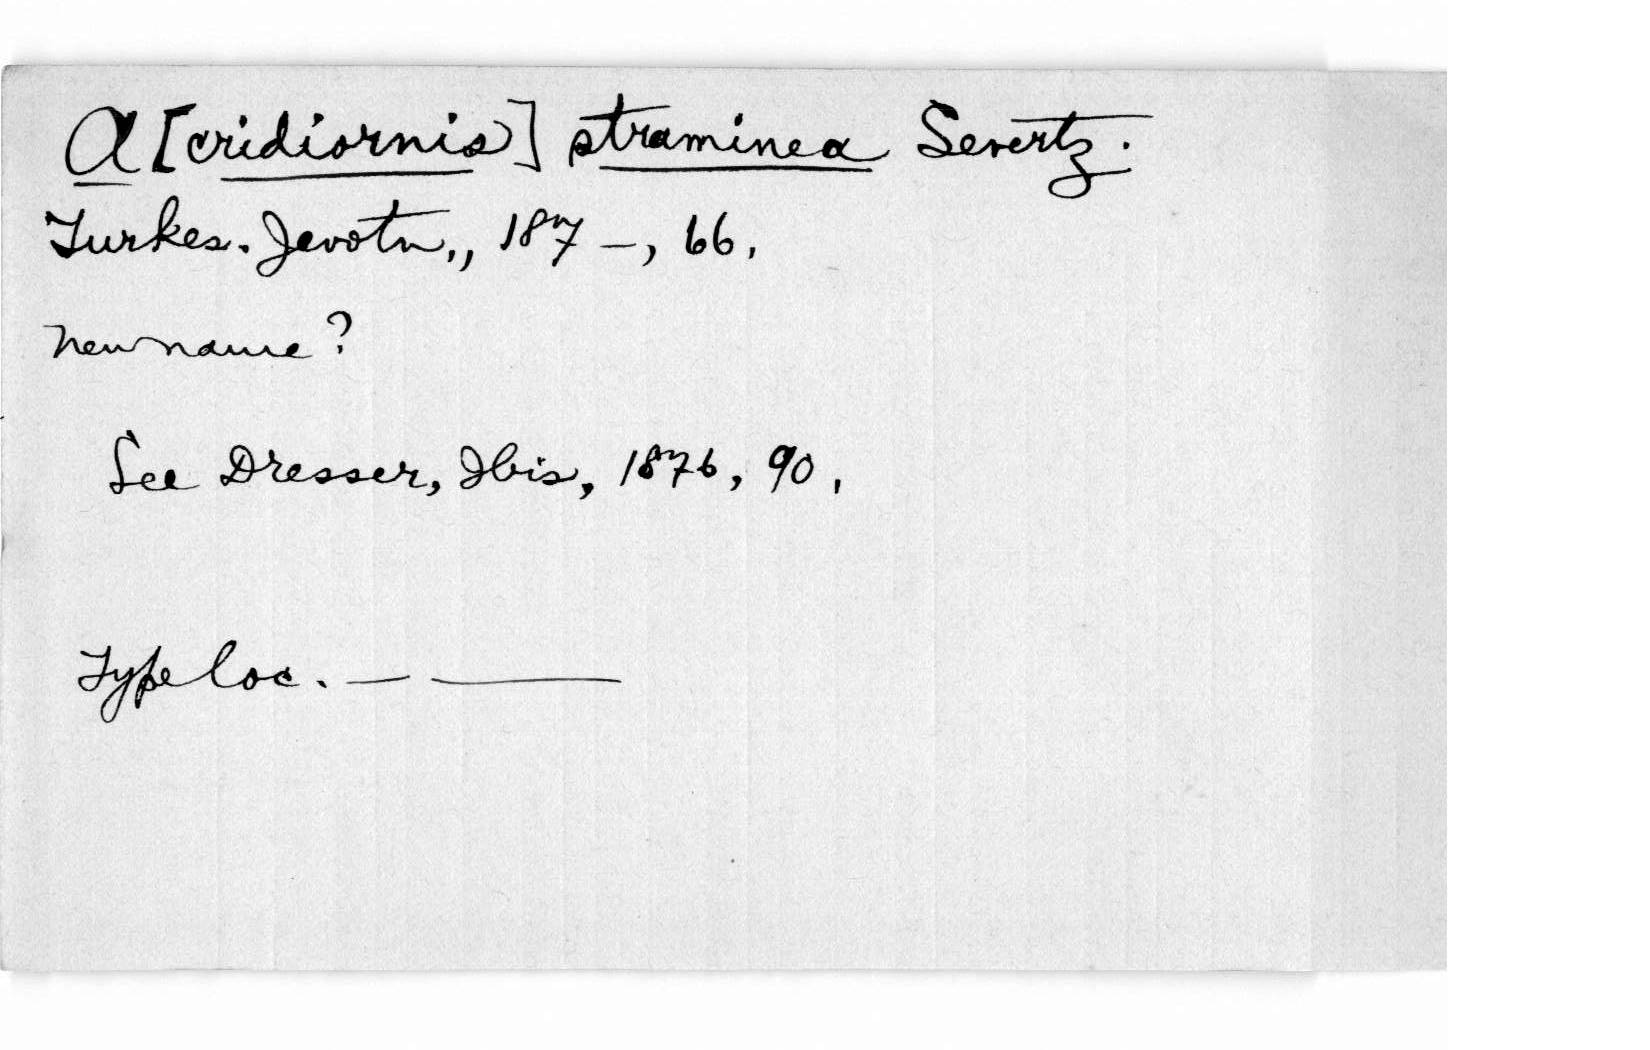 A[cridiornis] straminea Severtz.
Turkes. Jevotn., 187 –, 66.
New name?
See Dresser, Ibis, 1876, 90.
Type loc. — ———